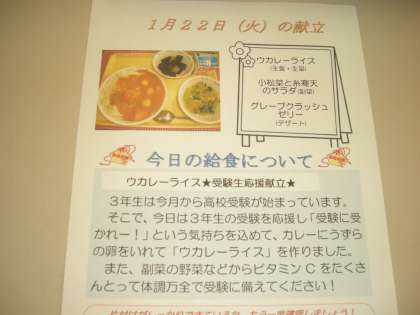 1月22日（火）の献立
ウカレーライス
(主食・主菜)
小松菜と糸寒天
のサラダ(副菜)
グレープクラッシュ
ゼリー
(デザート)
今日の給食について
ウカレーライス★受験生応援献立★
３年生は今月から高校受験が始まっています。
そこで、今日は３年生の受験を応援し「受験に受
かれー！」という気持ちを込めて、カレーにうずら
の卵をいれて「ウカレーライス」を作りました。
また、副菜の野菜などからビタミンＣをたくさ
んとって体調万全で受験に備えてください！